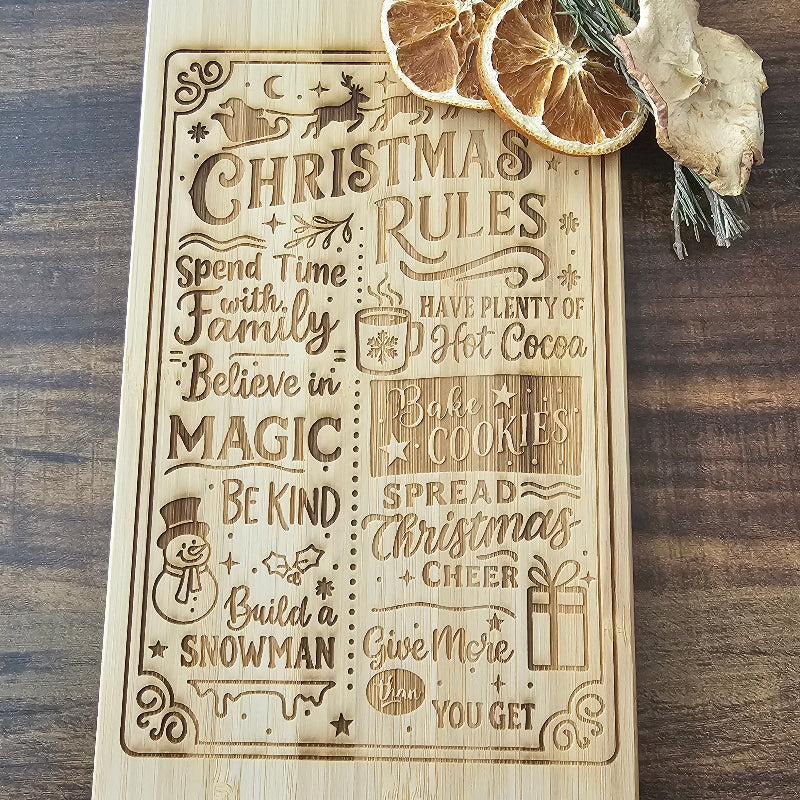 CHRISTMAS
RULES
Spend Time
with
Family
Believe in
MAGIC
BE KIND
Build a
SNOWMAN
HAVE PLENTY OF
Hot Cocoa
Bake
COOKIES
SPREAD
Christmas
CHEER
Give More
than
YOU GET